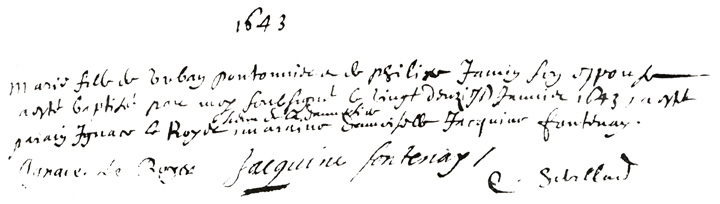 1643
Marie fille de Urbay pontonnier & de philipe Jamin son espouse
a esté baptisée par moy soubsigné le vingt deuxi Janvier 1643 a esté
parain Ignace le Roy maraine damoiselle Jacquine fontenay.
Ignace le Roy Jacquine fontenay